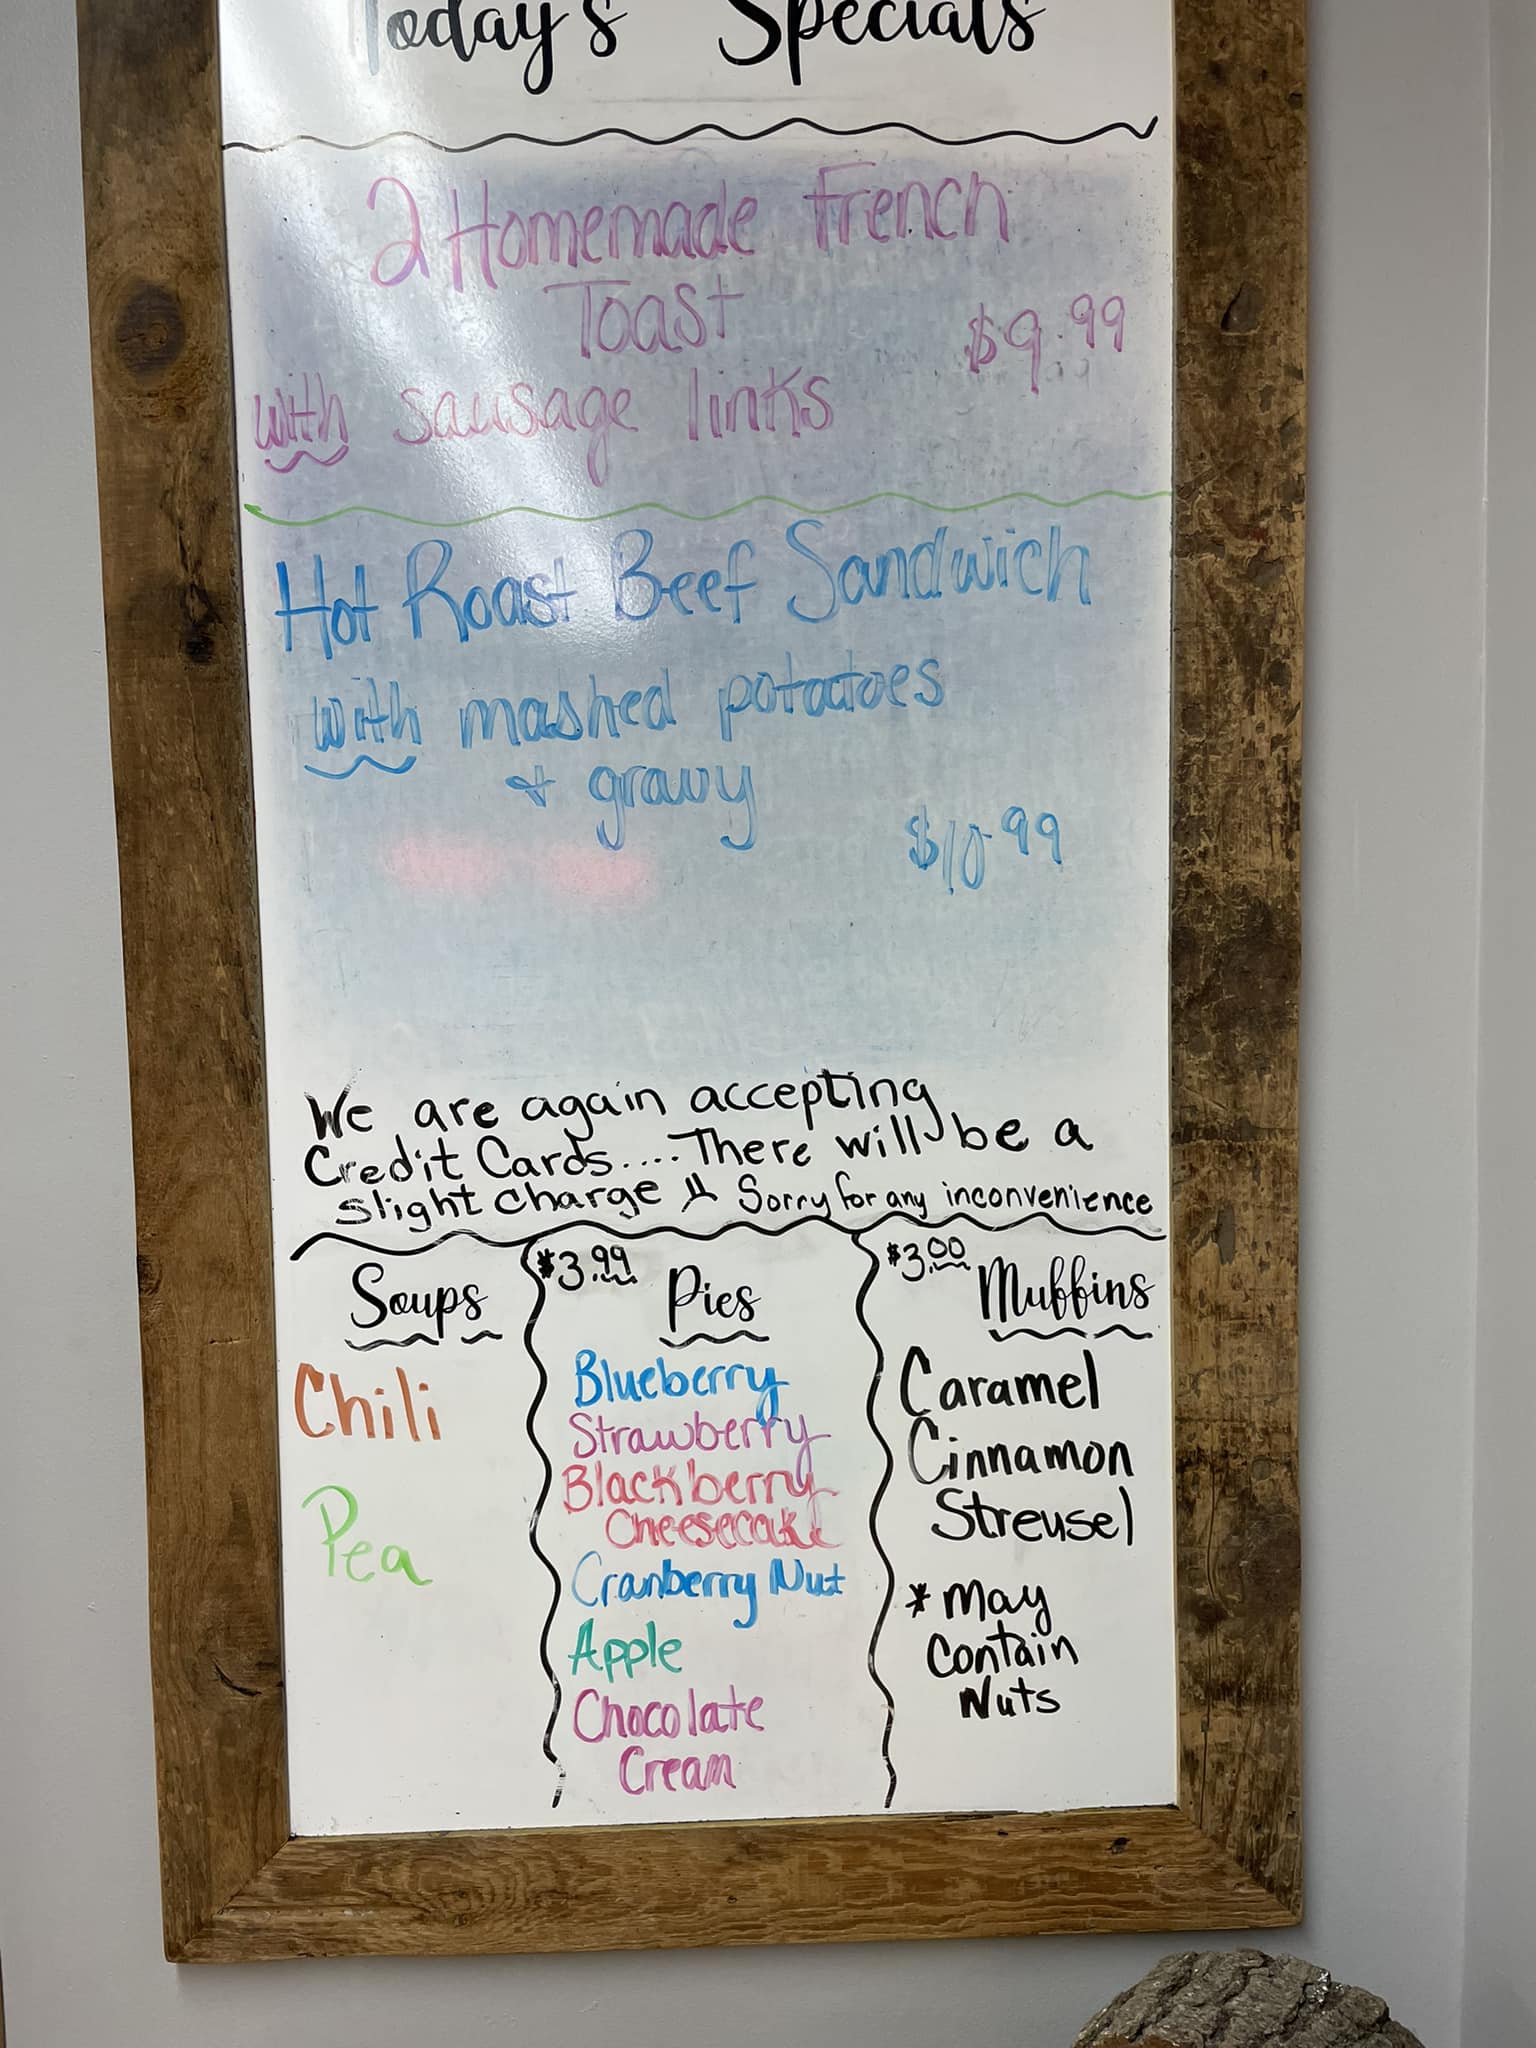 Today's Specials
2 Homemade French
Toast
$9.99
with sausage links
Hot Roast Beef Sandwich
with mashed potatoes
& gravy
$10.99
We are again accepting
Credit Cards....There will be a
slight charge Sorry for any inconvenience
Soups
Chili
Pea
$3.99
Pies
Blueberry
Strawberry
Blackberry
Cheesecake
Cranberry Nut
Apple
Chocolate
Cream
$3.00
Muffins
Caramel
Cinnamon
Streusel
* May
Contain
Nuts